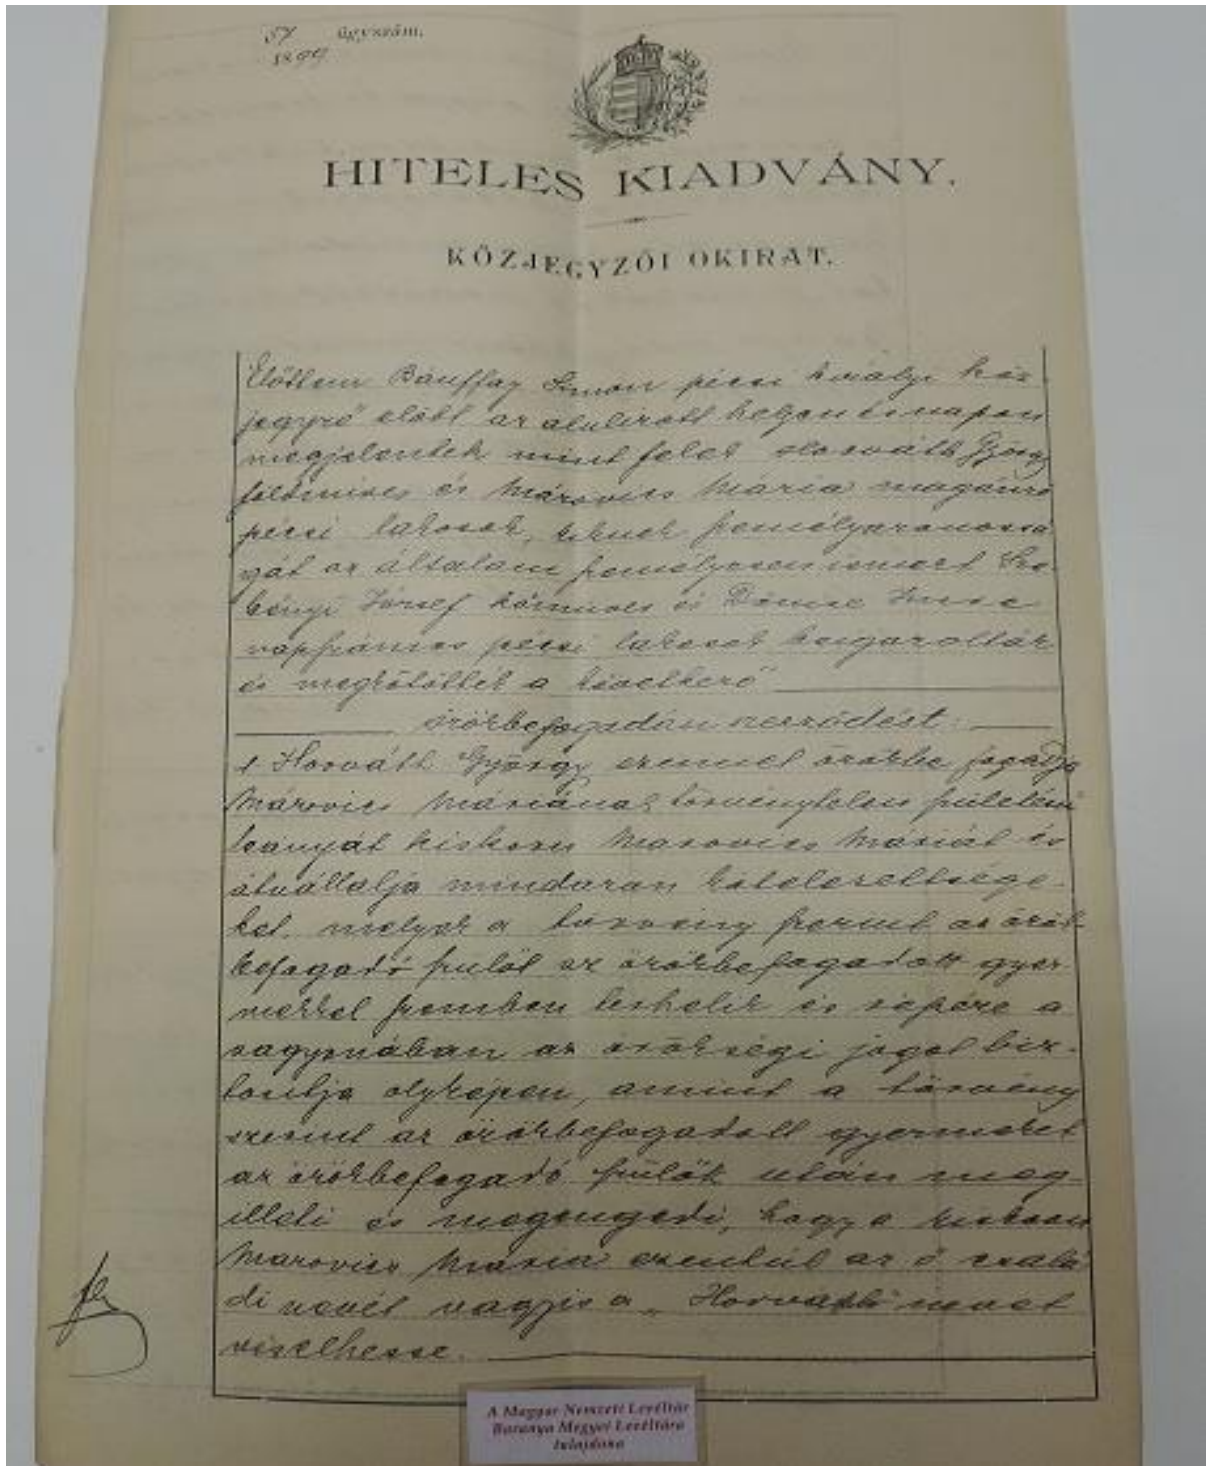 57 ügyszám.
1899
HITELES KIADVÁNY.
KÖZJEGYZŐI OKIRAT.
Előttem Bánffay Simon pécsi királyi köz-
jegyző előtt az alulirott helyen és napon
megjelentek mint felek Horváth György
földmives és Márovics Mária magánzó
pécsi lakosok, kiknek személyazonossá
gát az általam személyesen ismert
József kőmives és
napszámos pécsi lakosok beigazolták
és megkötötték a következő
örökbefogadási szerződést:
1 Horváth György ezennel örökbe fogadja
Márovics Máriának törvénytelen születésü
leányát kiskoru Marovics Máriát és
átvállalja mindazon kötelezettsége-
ket, melyek a törvény szerint az örök-
befogadó szülőt az örökbefogadott gyer-
mekkel szemben terhelik és részére a
vagyonában az örökségi jogot biz-
tositja olyképen, amint a törvény
szerint az örökbefogadott gyermeket
az örökbefogadó szülők után meg-
illeti és megengedi, hogy a kiskoru
Marovics Mária ezentúl az ő csalá
di nevét vagyis a „Horváth" nevet
viselhesse.
A Magyar Nemzeti Levéltár
Baranya Megyei Levéltára
tulajdona